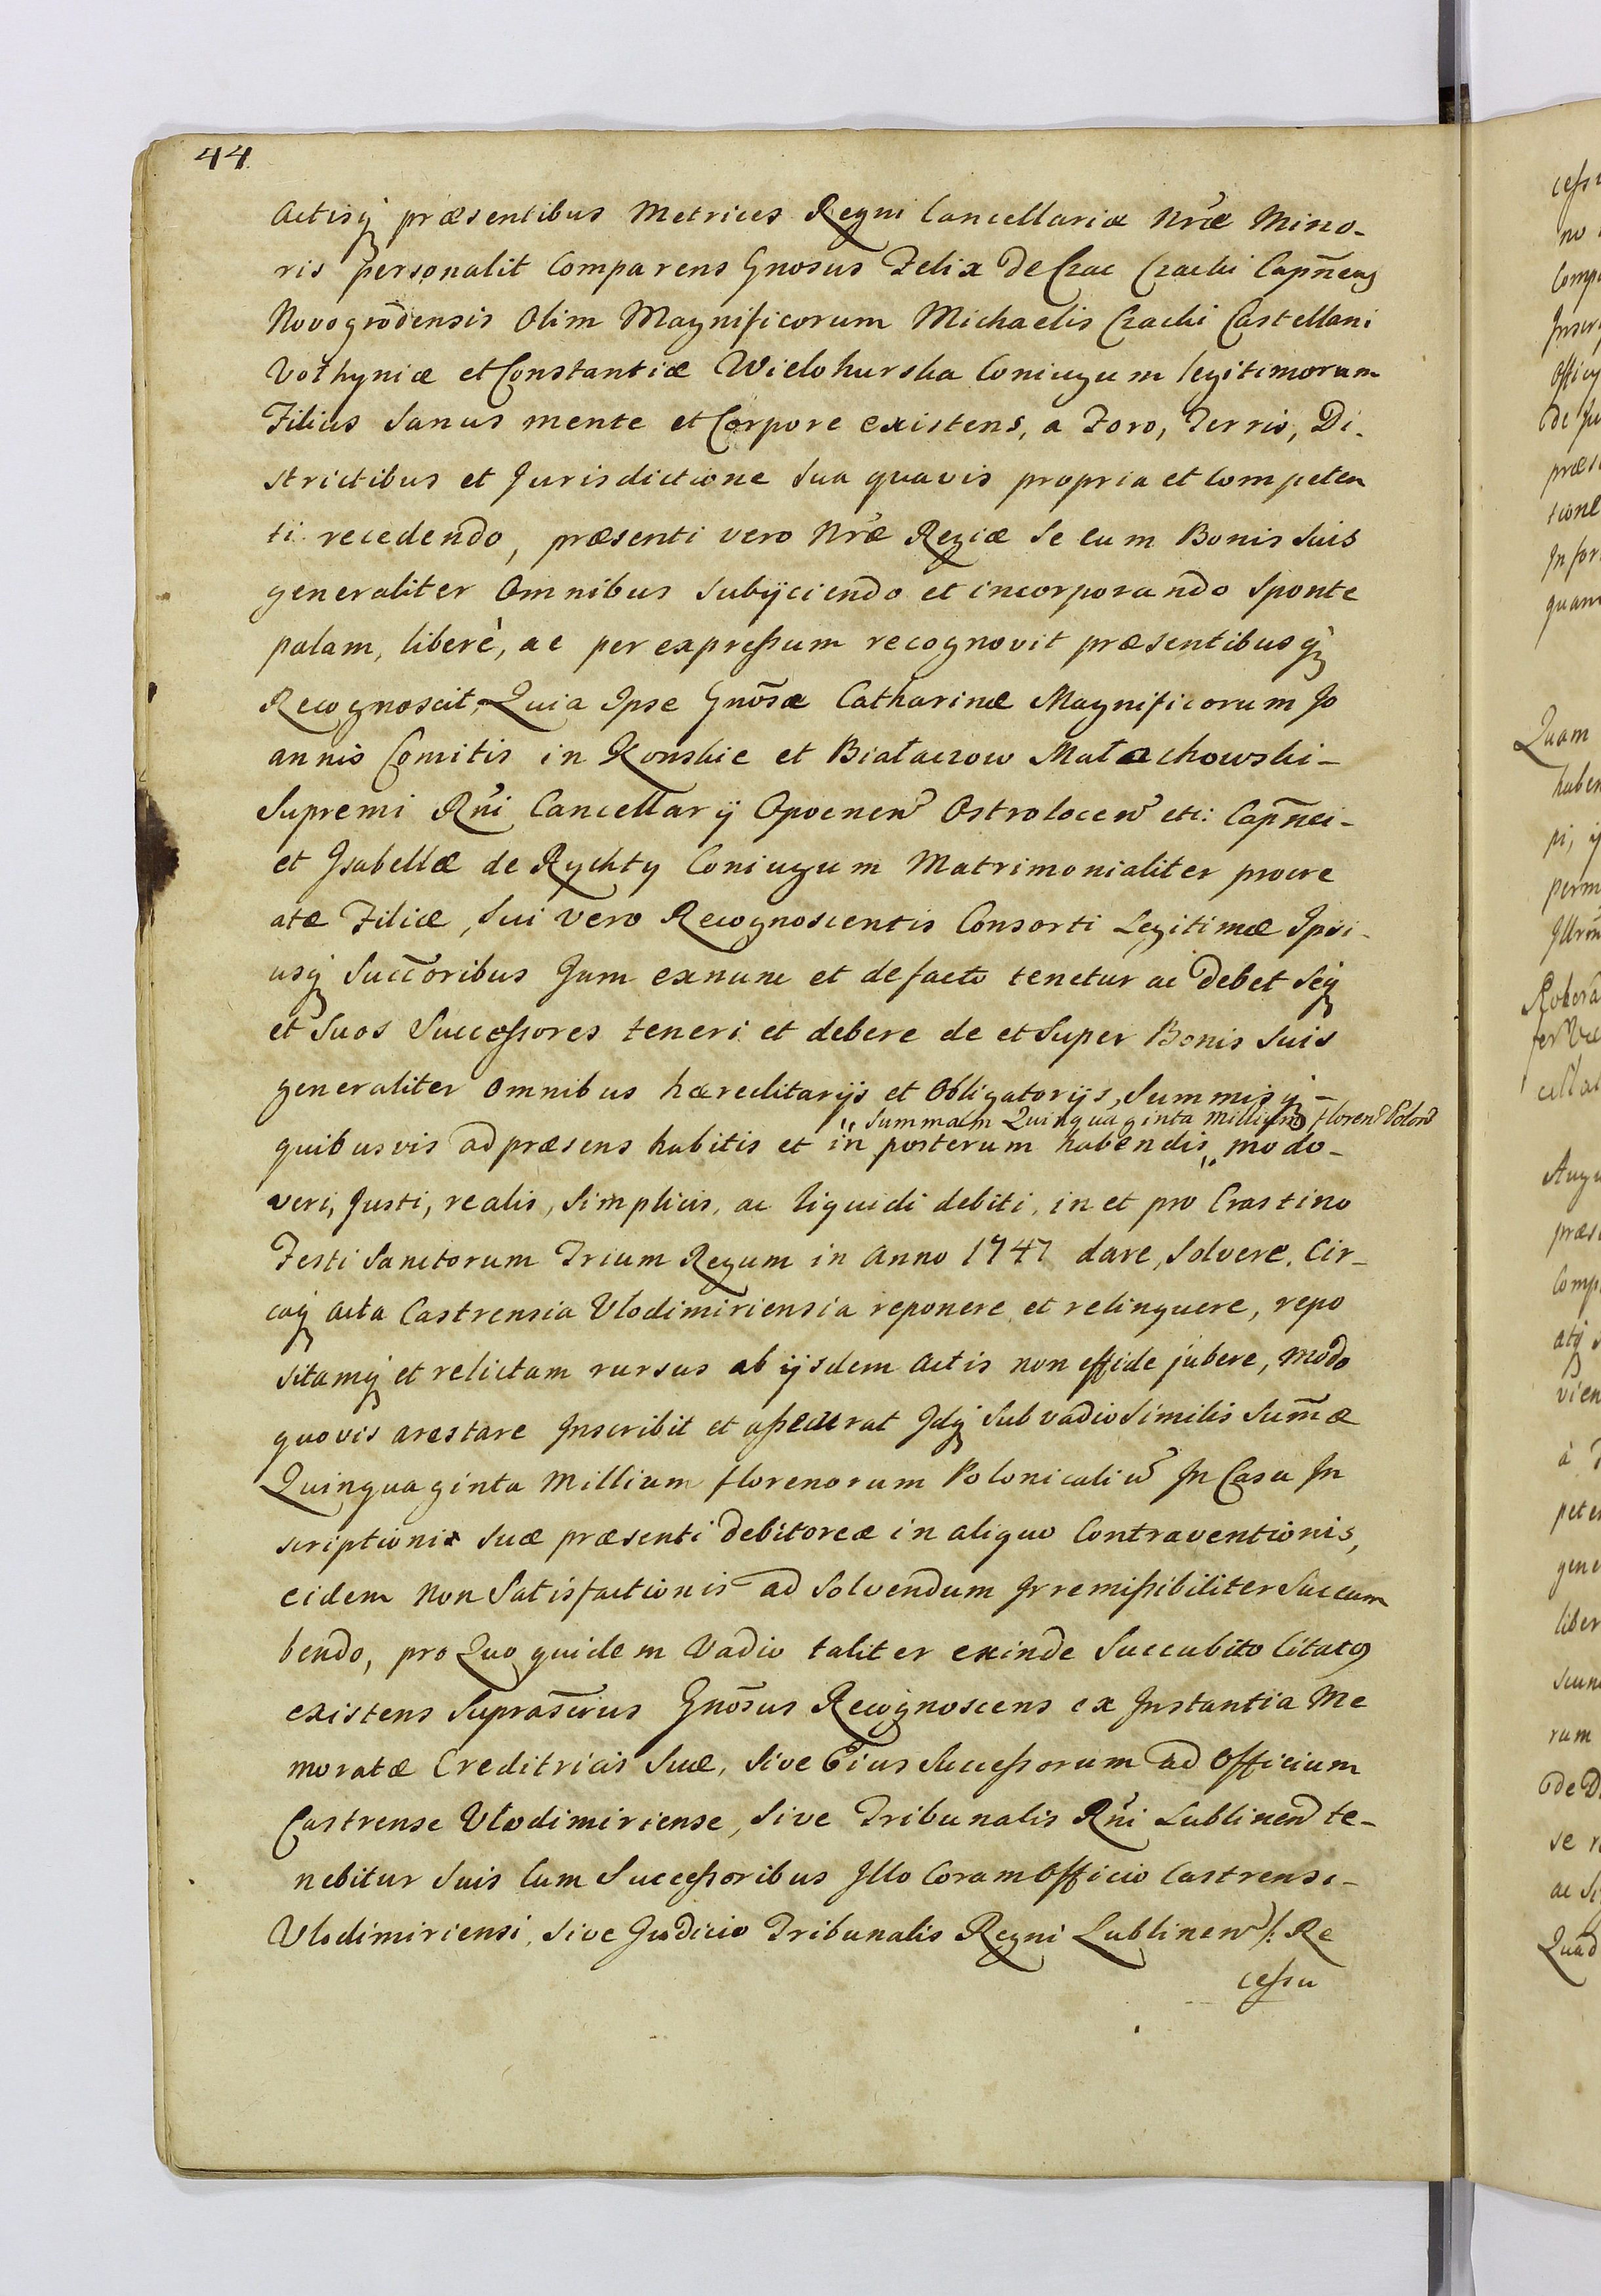 44
Actisq̃ præsentibus Metrices Regni Cancellariæ Nr̃æ Mino-
ris personalit Comparens Gnosus Felix de Czac Czacki Capñeus
Novogrõdensis Olim Magnificorum Michaelis Czacki Castellani
Vołhyniæ et Constantiæ Wielohurska Coniugum legitimorum
Filius Sanus mente et Corpore existens, a Foro, Terris, Di-
strictibus et Jurisdictione sua quavis propria et Competen
ti recedendo, præsenti vero Nr̃æ Regiæ se cum Bonis suis
generaliter Omnibus subijciendo et incorporando sponte
palam, liberè, ac per expreßum recognovit præsentibusq̃
Recognoscit, Quia Ipse Gnõsæ Catharinæ Magnificorum Jo
annis Comitis in Konskie et Białaczow Małachowski-
Supremi Rñi Cancellarij Opocnen̄ Ostrolocen̄ etc: Capñei-
et Isabellæ de Rychty Coniugum Matrimonialiter procre
atæ Filiæ, Sui vero Recognoscentis Consorti Legitimæ Ipsi-
usq̃ Succõribus Jam exnunc et defacto tenetur ac debet seq̃
et Suos Succeßores teneri et debere de et super Bonis suis
generaliter omnibus hæreditarijs et Obligatorijs, Summisq̃-
" Summam Quinquaginta Millium floren̄ Polon̄
quibusvis ad præsens habitis et in posterum habendis " modo-
veri, Justi, realis, Simplicis, ac liquidi debiti, in et pro Crastino
Festi Sanctorum Trium Regum in Anno 1747 dare, Solvere, Cir-
caq̃ Acta Castrensia Vlodimiriensia reponere et relinquere, repo
sitamq̃ et relictam rursus ab ijsdem Actis non effide jubere, modo
quovis arestare Inscribit et aßecurat Idq̃ sub vadio similis Sum̃æ
Quinquaginta Millium florenorum Polonicaliũ In Casu In
scriptionis suæ præsenti debitoreæ in aliquo Contraventionis,
eidem non Satisfactionis ad Solvendum Irremißibiliter Succum
bendo, pro Quo quidem Vadio taliter exinde Succubito Citatus
existens Suprasc̃rius Gnõsus Recognoscens ex Instantia Me
moratæ Creditricis Suæ, sive Eius Succeßorum ad Officium
Castrense Vlodimiriense, Sive Tribunalis Rñi Lublinen̄ te-
nebitur Suis Cum Succeßoribus Illo Coram Officio Castrensi-
Vlodimiriensi, sive Judicio Tribunalis Regni Lublinen̄ /: Re
ceßu